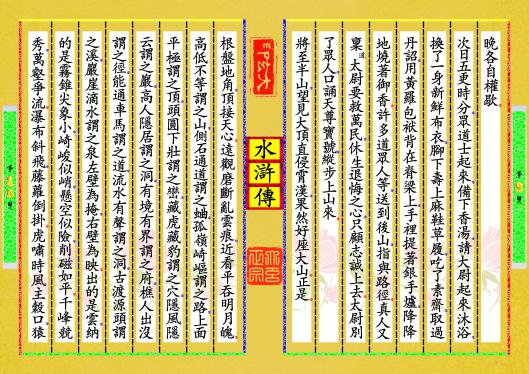 晚各自權歇
次日五更時分眾道士起來備下香湯請太尉起來沐浴
換了一身新鮮布衣腳下壽上麻鞋草履吃了素齋取過
丹詔用黃羅包袱背在脊梁上手裡提著銀手爐降降
地燒著御香許多道眾人等送到後山指與路徑真人又
稟道太尉要救萬民休生退悔之心只顧志誠上去太尉別
了眾人口誦天尊寶號縱步上山來
將至半山望見大頂直侵霄漢果然好座大山正是
水滸傳
根盤地角頂接天心遠觀磨斷亂雲痕近看平吞明月魄
高低不等謂之山側石通道謂之岫孤嶺崎嶇謂之路上面
平極謂之頂頭圓下壯謂之巒藏虎藏豹謂之穴隱風隱
云謂之巖高人隱居謂之洞有境有界謂之府樵人出沒
謂之徑能通車馬謂之道流水有聲謂之洞古渡源頭謂
之溪巖崖滴水謂之泉左壁為掩右壁為映出的是雲納
的是霧錐尖象小崎峻似峭懸空似險削磁如平千峰競
秀萬壑爭流瀑布斜飛藤蘿倒掛虎嘯時風生谷口猿